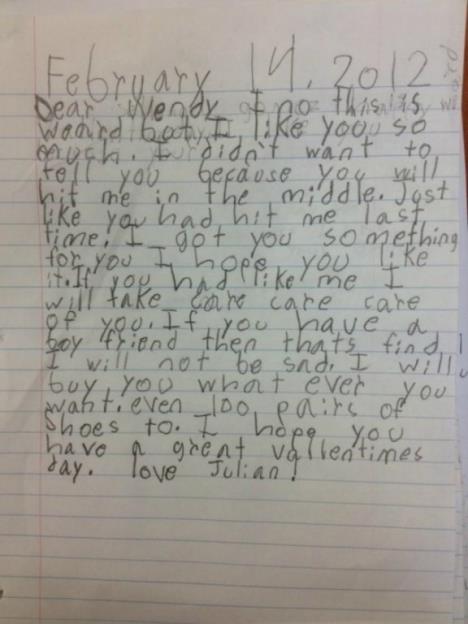 February 14, 2012
Dear Wendy I no this is
weard but I like you so
much. I didn't want to
tell you because you will
hit me in the middle. Just
like you had hit me last
time. I got you something
for you I hope you like
it. If you had like me I
will take care care care
of you. If you have a
boy friend then thats find
I will not be sad. I will
buy you what ever you
want. even 100 pairs of
shoes to. I hope you
have a great vallentimes
day. love Julian!